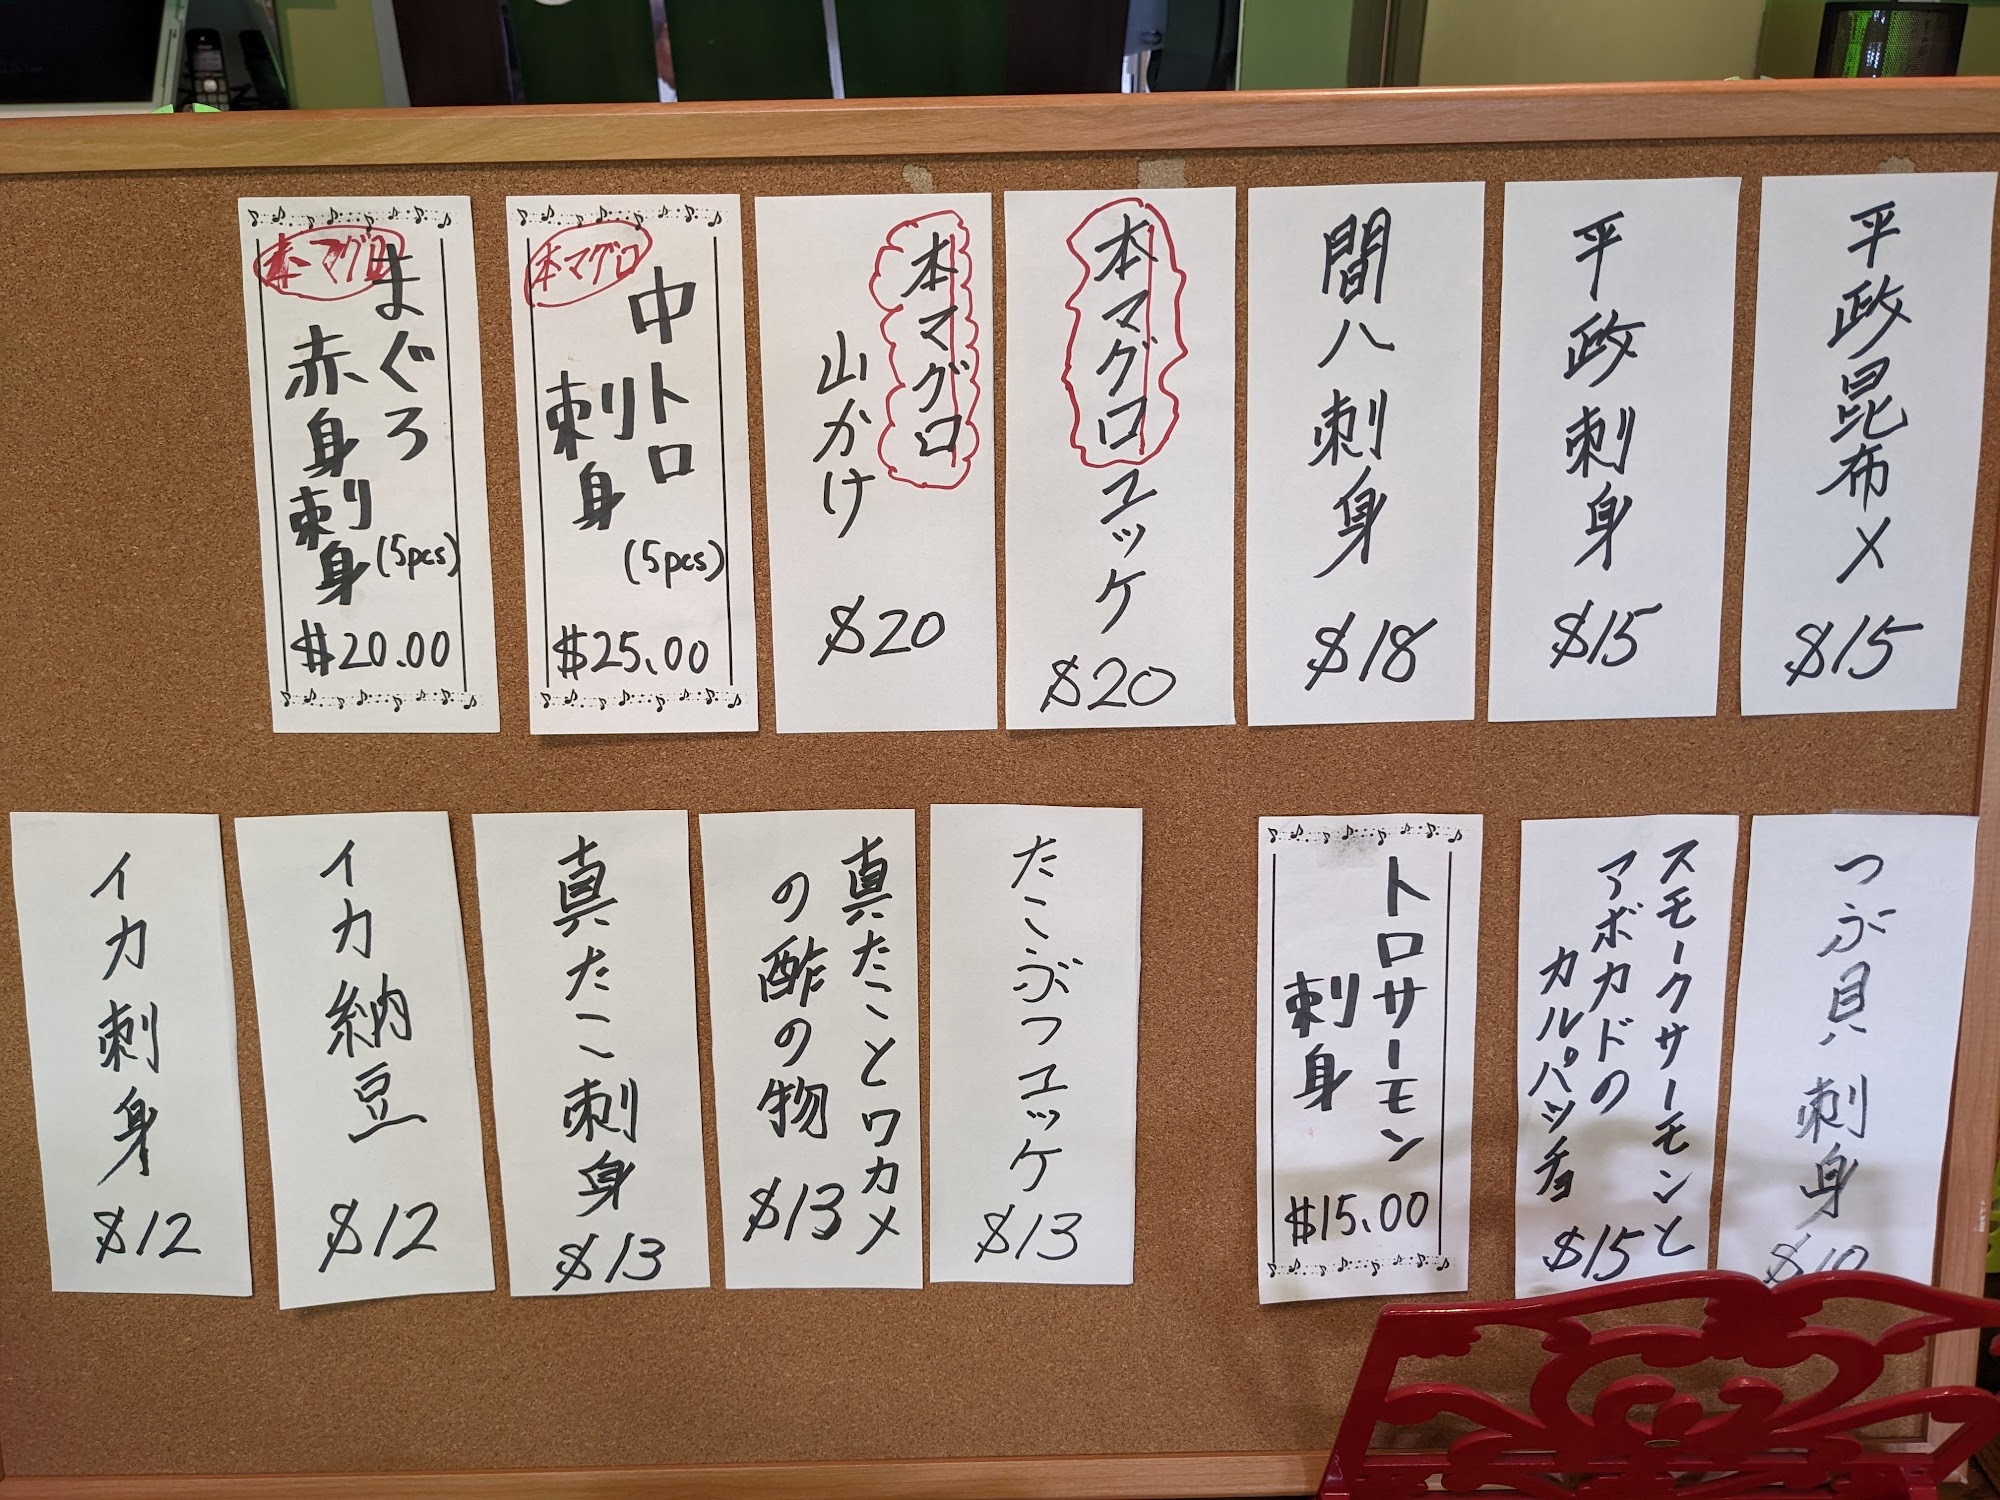 平政昆布メ
$15
平政刺身
$15
間八刺身
$18
本マグロユッケ
$20
本マグロ
山かけ
$20
本マグロ
中トロ
刺身
(5pcs)
$25.00
本マグロ
まぐろ
赤身刺身
(5pcs)
$20.00
つぶ貝刺身
スモークサーモンと
アボカドの
カルパッチョ
$15
トロサーモン
刺身
$15.00
たこぶつユッケ
$13
真たことワカメ
の酢の物
$13
真たこ刺身
$13
イカ納豆
$12
イカ刺身
$12